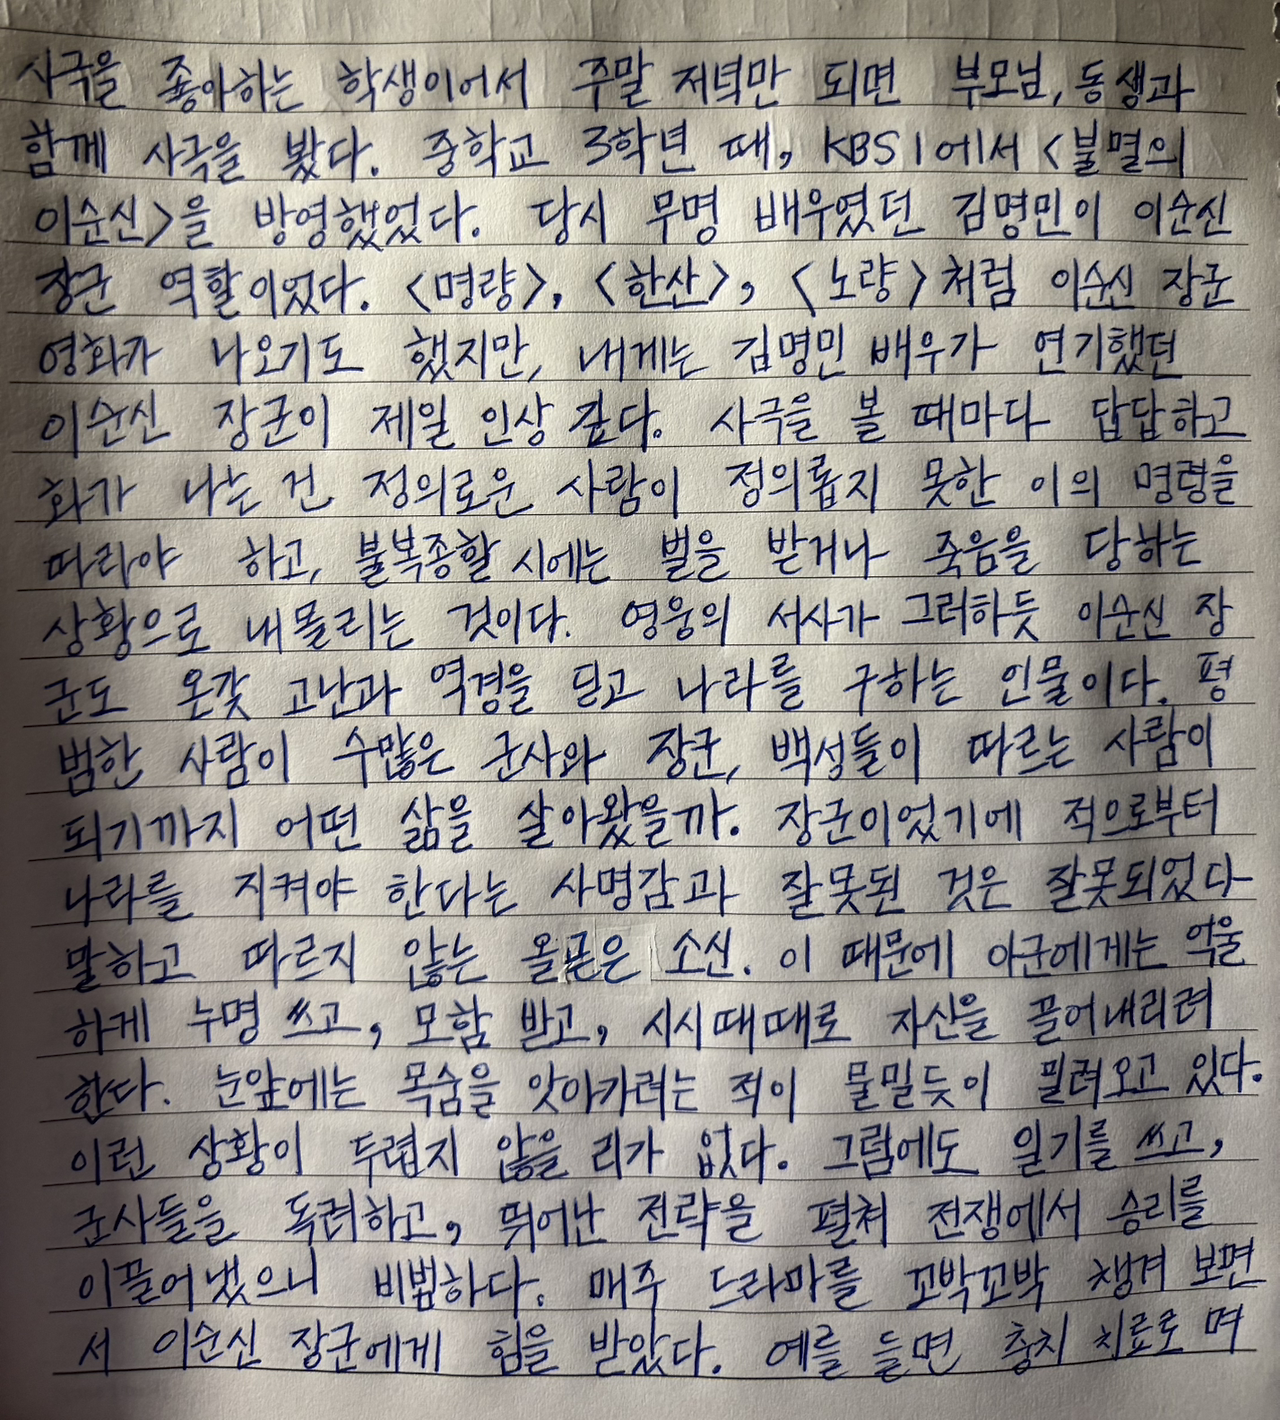 사극을 좋아하는 학생이어서 주말 저녁만 되면 부모님, 동생과
함께 사극을 봤다. 중학교 3학년 때, KBS1에서 <불멸의
이순신>을 방영했었다. 당시 무명 배우였던 김명민이 이순신
장군 역할이었다. <명량>, <한산>, <노량>처럼 이순신 장군
영화가 나오기도 했지만, 내게는 김명민 배우가 연기했던
이순신 장군이 제일 인상 깊다. 사극을 볼 때마다 답답하고
화가 나는 건 정의로운 사람이 정의롭지 못한 이의 명령을
따라야 하고, 불복종할 시에는 벌을 받거나 죽음을 당하는
상황으로 내몰리는 것이다. 영웅의 서사가 그러하듯 이순신 장
군도 온갖 고난과 역경을 딛고 나라를 구하는 인물이다. 평
범한 사람이 수많은 군사와 장군, 백성들이 따르는 사람이
되기까지 어떤 삶을 살아왔을까. 장군이었기에 적으로부터
나라를 지켜야 한다는 사명감과 잘못된 것은 잘못되었다
말하고 따르지 않는 올곧은 소신. 이 때문에 아군에게는 억울
하게 누명 쓰고, 모함 받고, 시시때때로 자신을 끌어내리려
한다. 눈앞에는 목숨을 앗아가려는 적이 물밀듯이 밀려오고 있다.
이런 상황이 두렵지 않을 리가 없다. 그럼에도 일기를 쓰고,
군사들을 독려하고, 뛰어난 전략을 펼쳐 전쟁에서 승리를
이끌어냈으니 비범하다. 매주 드라마를 꼬박꼬박 챙겨 보면
서 이순신 장군에게 힘을 받았다. 예를 들면 충치 치료로 며